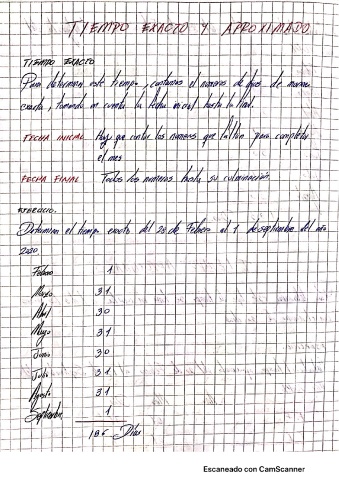 TIEMPO EXACTO Y APROXIMADO
TIEMPO EXACTO
Para determinar este tiempo, contamos el número de días de manera
exacta, tomando en cuenta la fecha inicial hasta la final.
FECHA INICIAL Hay que contar los números que faltan para completar
el mes
FECHA FINAL Todos los números hasta su culminación.
EJERCICIO.
Determinar el tiempo exacto del 28 de Febrero al 1 de septiembre del año
2020.
Febrero 1
Marzo 31
Abril 30
Mayo 31
Junio 30
Julio 31
Agosto 31
Septiembre 1
186 Días
Escaneado con CamScanner